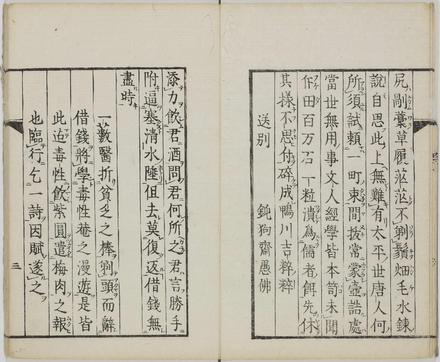 尻剮囊草履茫茫不剃鬚畑毛水錬
說自思此上無難有太平世唐人何
所須試頼一町束間拔常蒙壺誥處
當世無用事文人經學皆本笥未聞
作田百万石一粒潰為儒者餌先休
其樣不思付碎成鴨川吉粹粹
送別　鈍狗齋愚佛
添力飲君酒問君何所之君言勝手
附逼塞清水隆但去莫復返借錢無
盡時
一藪醫折貧乏之棒剃頭而辭
借錢將學毒性菴之漫遊是皆
此迫毒性飲紫圓遣梅肉之報
也臨行乞一詩因賦遂之
三